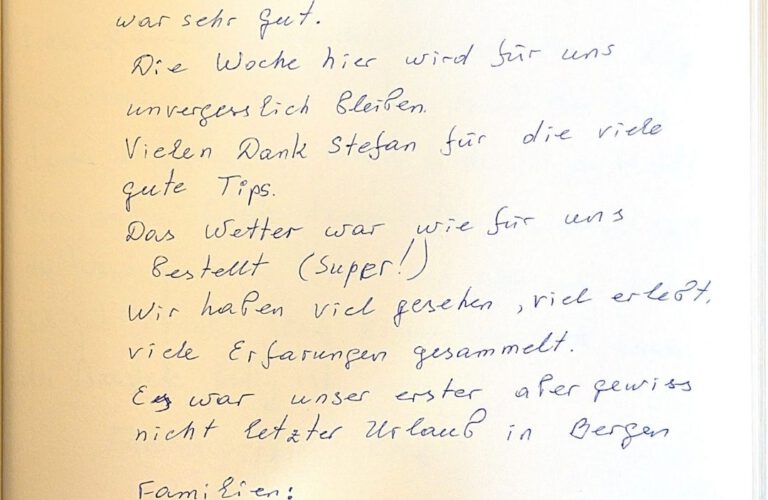 war sehr gut.
Die Woche hier wird für uns
unvergesslich Bleiben.
Vielen Dank Stefan für die viele
gute Tips.
Das Wetter war wie für uns
Bestellt (Super!)
Wir haben viel gesehen, viel erlebt,
viele Erfarungen gesammelt.
Es war unser erster aber gewiss
nicht letzter Urlaub in Bergen
Familien: